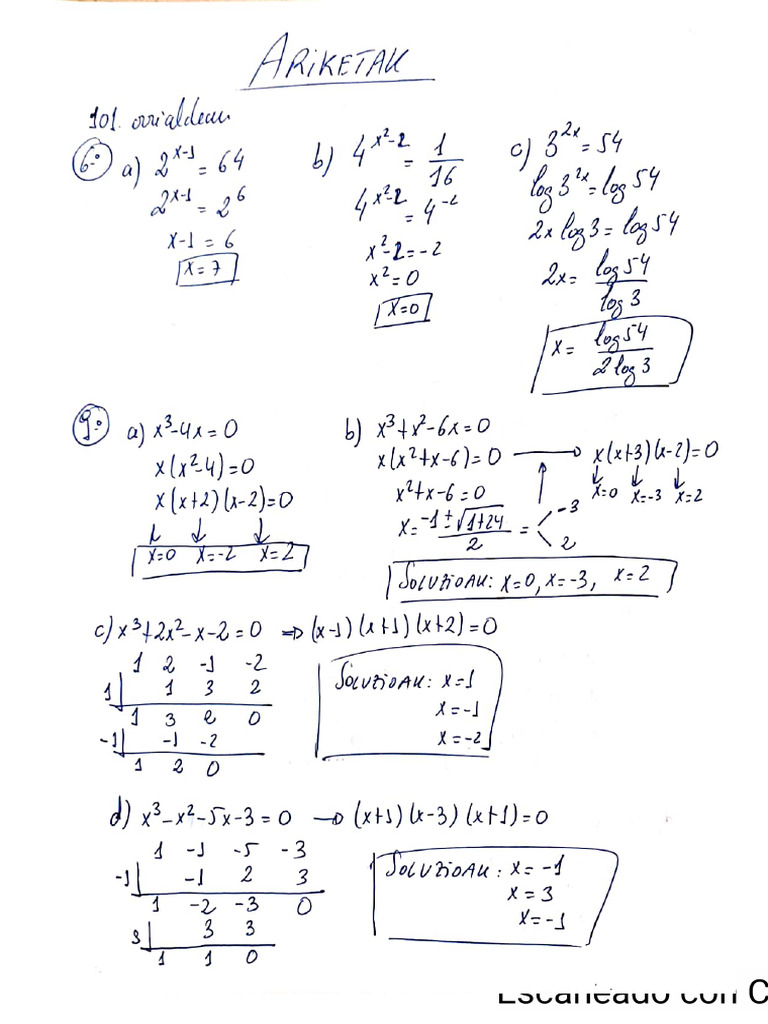 ARIKETAK
101. orrialdean
6.º a) 2^(x-1) = 64
2^(x-1) = 2^6
x-1 = 6
x=7
b) 4^(x²-2) = 1/16
4^(x²-2) = 4^(-2)
x²-2=-2
x²=0
x=0
c) 3^(2x) = 54
log 3^(2x) = log 54
2x log 3 = log 54
2x = log 54 / log 3
x = log 54 / 2 log 3
9.º a) x³-4x=0
x(x²-4)=0
x(x+2)(x-2)=0
x=0 x=-2 x=2
b) x³+x²-6x=0
x(x²+x-6)=0 → x(x+3)(x-2)=0
x=0 x=-3 x=2
x²+x-6=0
x= (-1±√(1+24))/2 = < -3
2
SOLUZIOAK: x=0, x=-3, x=2
c) x³+2x²-x-2=0 ⇒ (x-1)(x+1)(x+2)=0
1 2 -1 -2
1| 1 3 2
1 3 2 0
-1| -1 -2
1 2 0
SOLUZIOAK: x=1
x=-1
x=-2
d) x³-x²-5x-3=0 → (x+1)(x-3)(x+1)=0
1 -1 -5 -3
-1| -1 2 3
1 -2 -3 0
3| 3 3
1 1 0
SOLUZIOAK: x=-1
x=3
x=-1
Escaneado con C